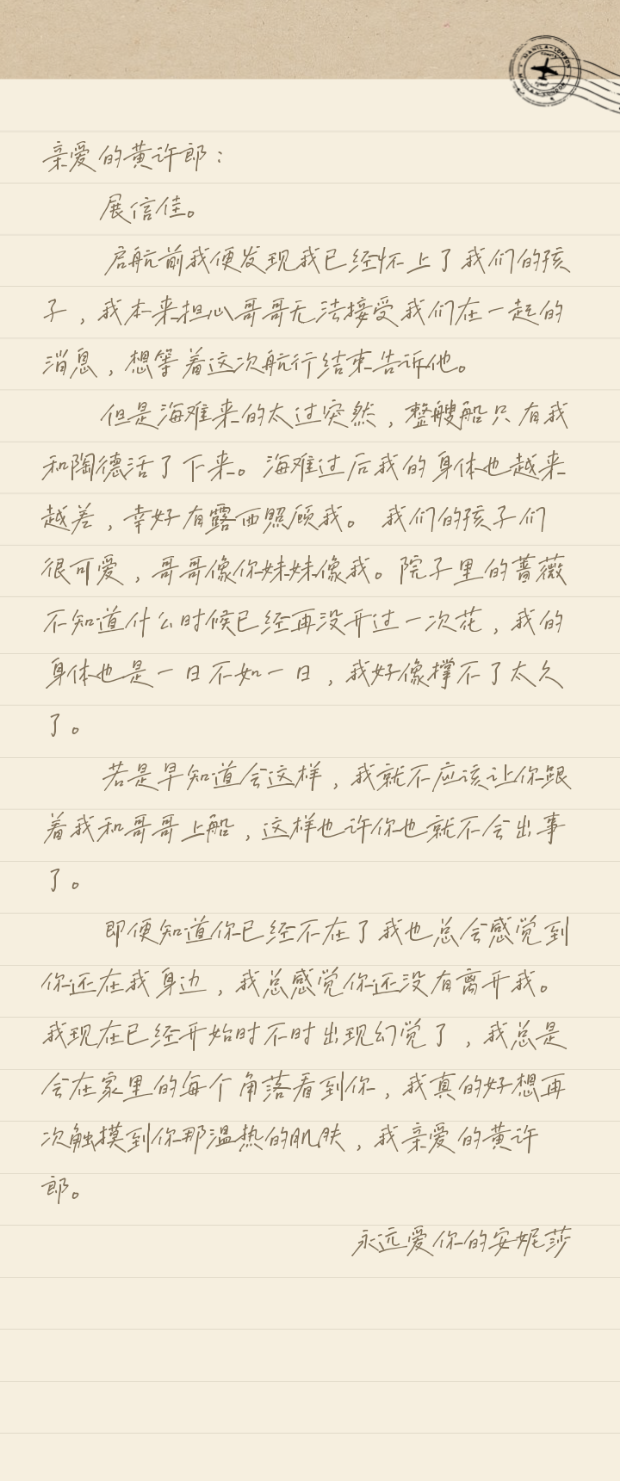 亲爱的黄许郎：
展信佳。
启航前我便发现我已经怀上了我们的孩
子，我本来担心哥哥无法接受我们在一起的
消息，想等着这次航行结束告诉他。
但是海难来的太过突然，整艘船只有我
和陶德活了下来。海难过后我的身体也越来
越差，幸好有露西照顾我。我们的孩子们
很可爱，哥哥像你妹妹像我。院子里的蔷薇
不知道什么时候已经再没开过一次花，我的
身体也是一日不如一日，我好像撑不了太久
了。
若是早知道会这样，我就不应该让你跟
着我和哥哥上船，这样也许你也就不会出事
了。
即便知道你已经不在了我也总会感觉到
你还在我身边，我总感觉你还没有离开我。
我现在已经开始时不时出现幻觉了，我总是
会在家里的每个角落看到你，我真的好想再
次触摸到你那温热的肌肤，我亲爱的黄许
郎。
永远爱你的安妮莎